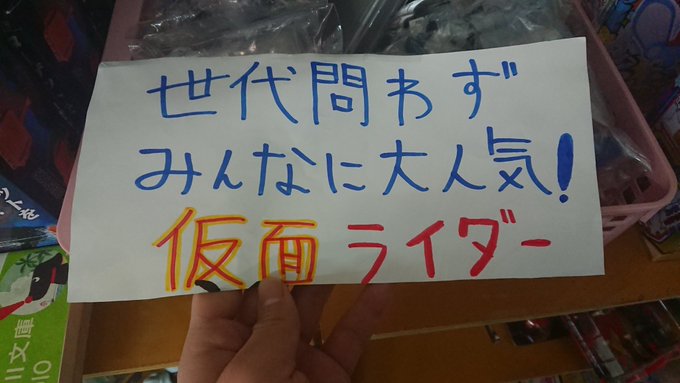 世代問わず
みんなに大人気!
仮面ライダー
川文庫